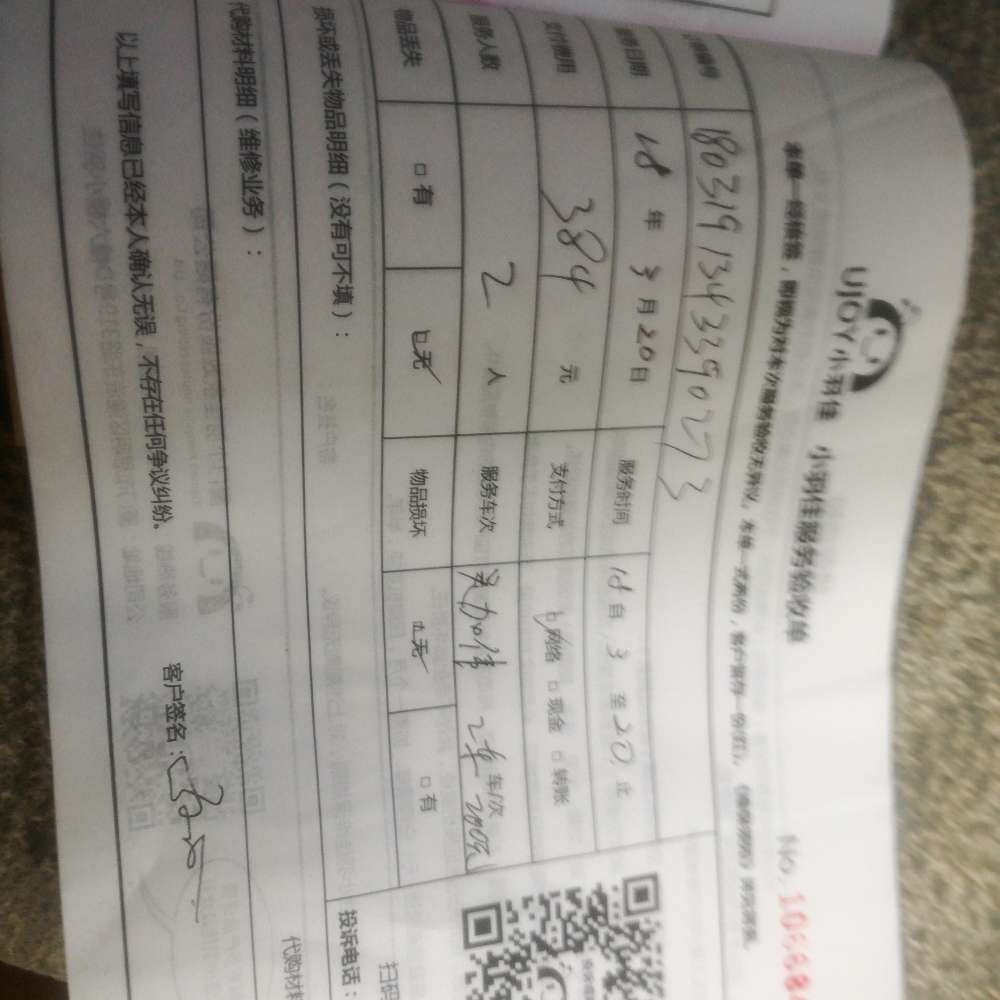 UJOY小羽佳 小羽佳服务验收单
No. 10668
本单一经签署，即视为对本次服务验收无异议。本单一式两份，客户留存一份(红)。
编号 180319134339073
服务日期 18年3月20日 服务时间 18自3至20止
支付费用 384元 支付方式 ☑网络 □现金 □转账
服务人数 2人 服务车次 2车 车/次 200元
物品丢失 □有 ☑无 物品损坏 ☑无 □有
损坏或丢失物品明细（没有可不填）：
投诉电话：
扫码
代购材料明细（维修业务）：
代购材料
以上填写信息已经本人确认无误，不存在任何争议纠纷。 客户签名：